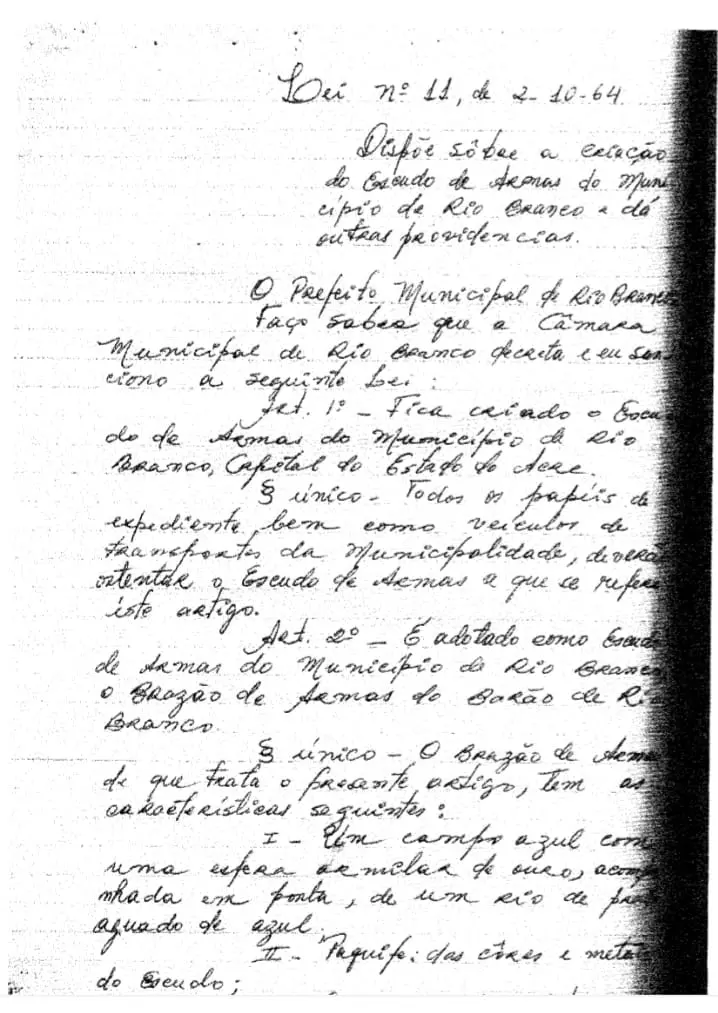 Lei nº 11, de 2-10-64.
Dispõe sôbre a criação
do Escudo de Armas do Muni
cípio de Rio Branco e dá
outras providencias.
O Prefeito Municipal de Rio Branco
Faço saber que a Câmara
Municipal de Rio Branco decreta e eu san
ciono a seguinte Lei:
Art. 1º - Fica criado o Escu
do de Armas do Município de Rio
Branco, Capital do Estado do Acre.
§ único - Todos os papéis de
expediente, bem como veículos de
transportes da Municipalidade, deverão
ostentar o Escudo de Armas a que se refere
êste artigo.
Art. 2º - É adotado como Escudo
de Armas do Município de Rio Branco,
o Brazão de Armas do Barão de Rio
Branco.
§ único - O Brazão de Arma
de que trata o presente artigo, tem as
características seguintes:
I - Um campo azul com
uma esfera armilar de ouro, acomp
nhada em ponta, de um rio de pra
aguado de azul.
II - Paquife: das côres e meta
do Escudo;